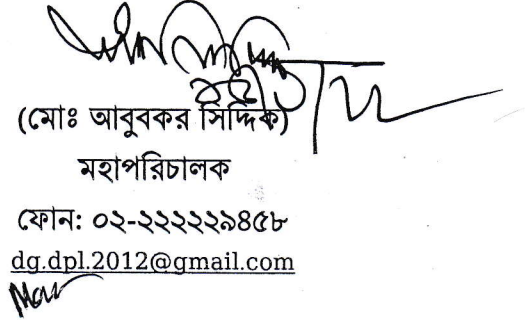 (মোঃ আবুবকর সিদ্দিক)
মহাপরিচালক
ফোন: ০২-২২২২২৯৪৫৮
dg.dpl.2012@gmail.com